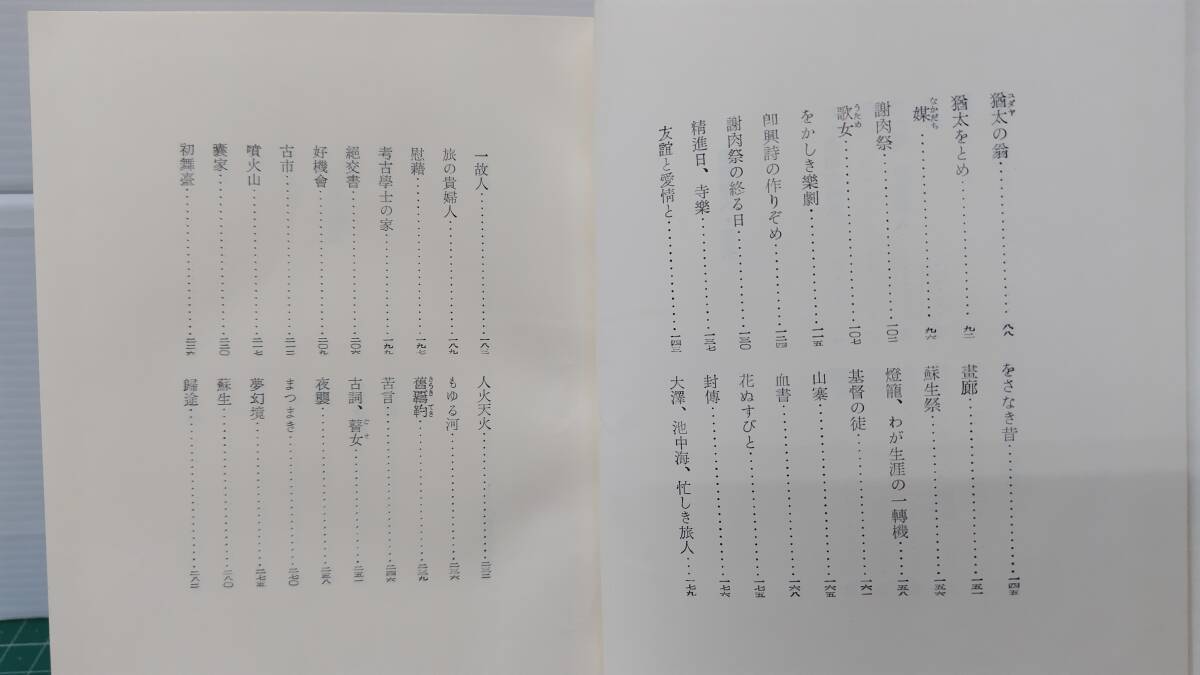 猶太の翁……八八
猶太をとめ……九二
媒……九六
謝肉祭……一〇三
歌女……一〇七
をかしき樂劇……一一五
卽興詩の作りぞめ……一二四
謝肉祭の終る日……一三〇
精進日、寺樂……一三七
友誼と愛情と……一四三
をさなき昔……一四五
畫廊……一五一
蘇生祭……一五六
燈籠、わが生涯の一轉機……一五八
基督の徒……一六一
山寨……一六五
血書……一六八
花ぬすびと……一七五
封傳……一七六
大澤、地中海、忙しき旅人……一七九
一故人……一八三
旅の貴婦人……一八九
慰藉……一九七
考古學士の家……一九九
絕交書……二〇六
好機會……二〇九
古市……二一二
噴火山……二一七
嚢家……二二〇
初舞臺……二二五
人火天火……二三二
もゆる河……二三六
舊羇靮……二三九
苦言……二四六
古詞、瞽女……二五一
夜襲……二五八
まつまき……二七〇
夢幻境……二七五
蘇生……二八〇
歸途……二八二